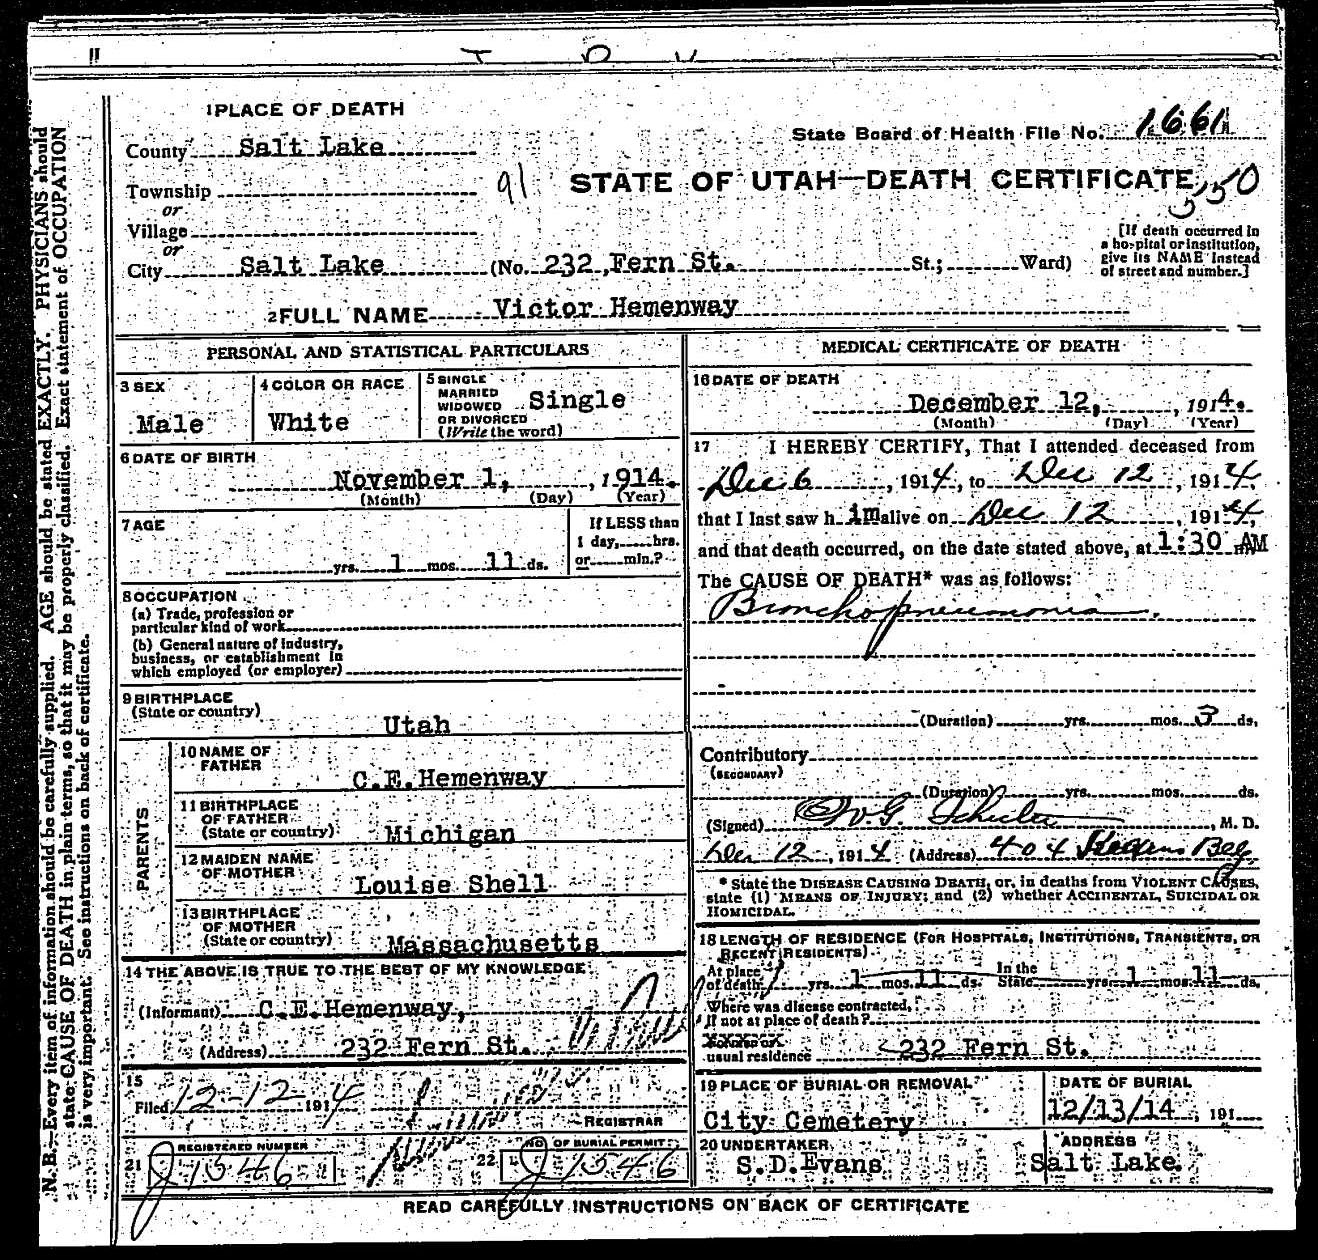 1 PLACE OF DEATH
County Salt Lake
State Board of Health File No. 1661
Township
or
Village
or
91 STATE OF UTAH—DEATH CERTIFICATE
City Salt Lake (No. 232, Fern St. St.; Ward)
[If death occurred in
a hospital or institution,
give its NAME instead
of street and number.]
2 FULL NAME Victor Hemenway
PERSONAL AND STATISTICAL PARTICULARS
3 SEX
Male
4 COLOR OR RACE
White
5 SINGLE
MARRIED
WIDOWED
OR DIVORCED
(Write the word)
Single
6 DATE OF BIRTH
November 1, , 1914.
(Month) (Day) (Year)
7 AGE
yrs. 1 mos. 11 ds.
If LESS than
1 day, hrs.
or min.?
8 OCCUPATION
(a) Trade, profession or
particular kind of work
(b) General nature of industry,
business, or establishment in
which employed (or employer)
9 BIRTHPLACE
(State or country)
Utah
PARENTS
10 NAME OF
FATHER
C.E.Hemenway
11 BIRTHPLACE
OF FATHER
(State or country)
Michigan
12 MAIDEN NAME
OF MOTHER
Louise Shell
13 BIRTHPLACE
OF MOTHER
(State or country)
Massachusetts
14 THE ABOVE IS TRUE TO THE BEST OF MY KNOWLEDGE
(Informant) C.E.Hemenway,
(Address) 232 Fern St.
15
Filed 12-12 1914
REGISTRAR
REGISTERED NUMBER
21 J 1546
NO. OF BURIAL PERMIT
22 J 1546
MEDICAL CERTIFICATE OF DEATH
16 DATE OF DEATH
December 12, , 1914.
(Month) (Day) (Year)
17 I HEREBY CERTIFY, That I attended deceased from
Dec 6 , 1914, to Dec 12 , 1914,
that I last saw h im alive on Dec 12 , 1914,
and that death occurred, on the date stated above, at 1:30 AM
The CAUSE OF DEATH* was as follows:
Bronchopneumonia.
(Duration) yrs. mos. 3 ds.
Contributory
(SECONDARY)
(Duration) yrs. mos. ds.
(Signed) W.G. , M. D.
Dec 12 , 1914 (Address) 404
* State the DISEASE CAUSING DEATH, or, in deaths from VIOLENT CAUSES,
state (1) MEANS OF INJURY; and (2) whether ACCIDENTAL, SUICIDAL OR
HOMICIDAL.
18 LENGTH OF RESIDENCE (FOR HOSPITALS, INSTITUTIONS, TRANSIENTS, OR
RECENT RESIDENTS)
At place
of death yrs. 1 mos. 11 ds.
In the
State yrs. 1 mos. 11 ds.
Where was disease contracted,
if not at place of death?
usual residence 232 Fern St.
19 PLACE OF BURIAL OR REMOVAL
City Cemetery
DATE OF BURIAL
12/13/14 , 191
20 UNDERTAKER
S.D.Evans
ADDRESS
Salt Lake.
READ CAREFULLY INSTRUCTIONS ON BACK OF CERTIFICATE
N. B.—Every item of information should be carefully supplied. AGE should be stated EXACTLY. PHYSICIANS should
state CAUSE OF DEATH in plain terms, so that it may be properly classified. Exact statement of OCCUPATION
is very important. See instructions on back of certificate.